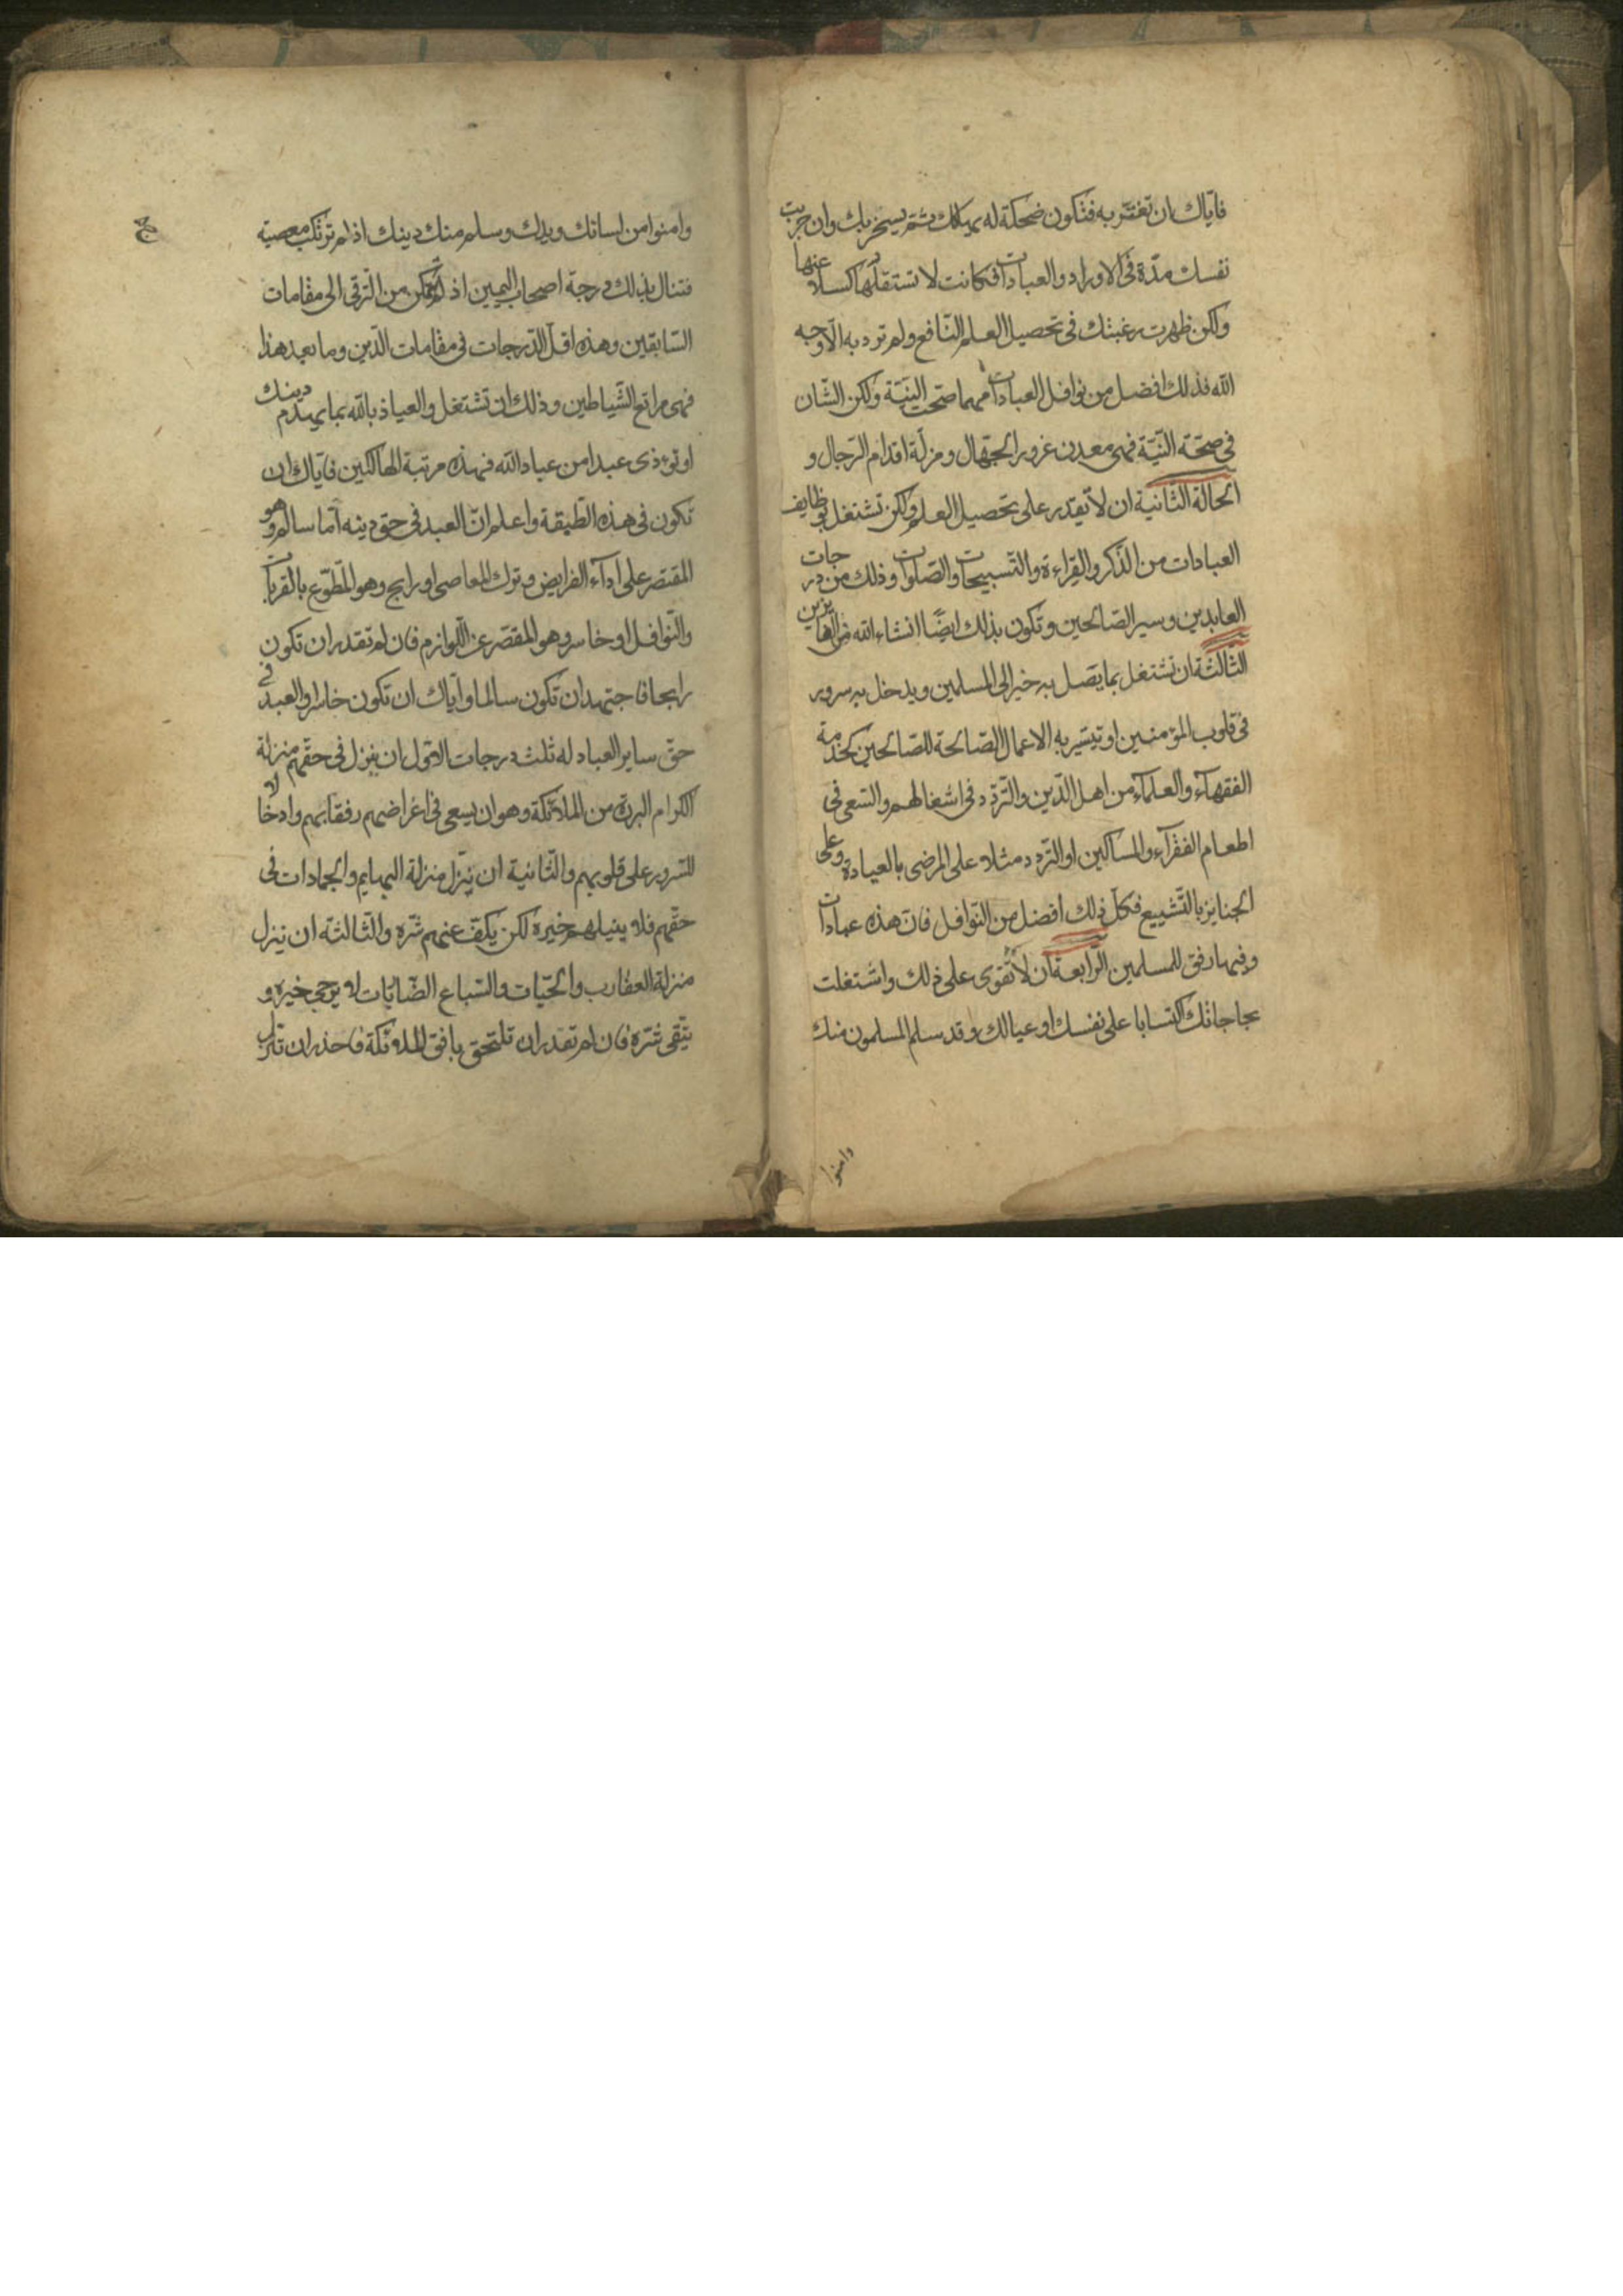 فاياك ان تغتر به فتكون ضحكة له يهلكك ثم يسخر بك وان جربت
نفسك مدّة فى الاوراد والعبادات فكانت لا تستثقلها كسلا عنها
ولكن ظهرت رغبتك فى تحصيل العلم النّافع ولم ترد به الّا وجه
الله فذلك افضل من نوافل العبادات مهما صحّت النيّة ولكن الشّان
فى صحّة النّيّة فهى معدن غرور الجهّال ومزلّة اقدام الرّجال و
الحالة الثّانية ان لا يقدر على تحصيل العلم ولكن تشتغل بوظايف
العبادات من الذّكر والقراءة والتّسبيحات والصّلوات وذلك من درجات
العابدين وسير الصّالحين وتكون بذلك ايضًا انشاء الله من الفايزين
الثّالثة ان تشتغل بما يصل به خير الى المسلمين ويدخل به سرور
فى قلوب المؤمنين او تيسّر به الاعمال الصّالحة للصّالحين كخدمة
الفقهآء والعلمآء من اهل الدّين والتّردّد فى اشغالهم والسّعى فى
اطعام الفقرآء والمساكين او التّردّد مثلا على المرضى بالعيادة وعلى
الجنايز بالتّشييع فكلّ ذلك افضل من النّوافل فانّ هذه عبادات
وفيها رفق للمسلمين الرّابعة ان لا تقوى على ذلك واشتغلت
بحاجاتك اكتسابا على نفسك او عيالك وقد سلم المسلمون منك
وامنوا
وامنوا من لسانك ويدك وسلم منك دينك اذا لم ترتكب معصية
فتنال بذلك درجة اصحاب اليمين اذ لم تتمكّن من التّرقى الى مقامات
السّابقين وهذه اقلّ الدّرجات فى مقامات الدّين وما بعد هذا
فهى مراتع الشّياطين وذلك ان تشتغل والعياذ بالله بما يهدم دينك
او تؤذى عبدا من عباد الله فهذه مرتبة الهالكين فايّاك ان
تكون فى هذه الطّبقة واعلم انّ العبد فى حق دينه امّا سالم وهو
المقتصر على ادآء الفرايض وترك المعاصى او رابح وهو المتطوّع بالقربات
والنّوافل او خاسر وهو المقصّر عن اللّوازم فان لم تقدر ان تكون
رابحا فاجتهد ان تكون سالما وايّاك ان تكون خاسرا والعبد فى
حقّ ساير العباد له ثلث درجات الاوّل ان ينزل فى حقّهم منزلة
الكرام البررة من الملائكة وهو ان يسعى فى اغراضهم رفقا بهم وادخالا
للسّرور على قلوبهم والثّانية ان ينزّل منزلة البهايم والجمادات فى
حقّهم فلا ينيلهم خيره لكن يكفّ عنهم شرّه والثّالثة ان ينزل
منزلة العقارب والحيّات والسّباع الضّاريات لا يرجى خيره و
يتّقى شرّه فان لم تقدر ان تلتحق بافق الملائكة فاحذر ان تنزل